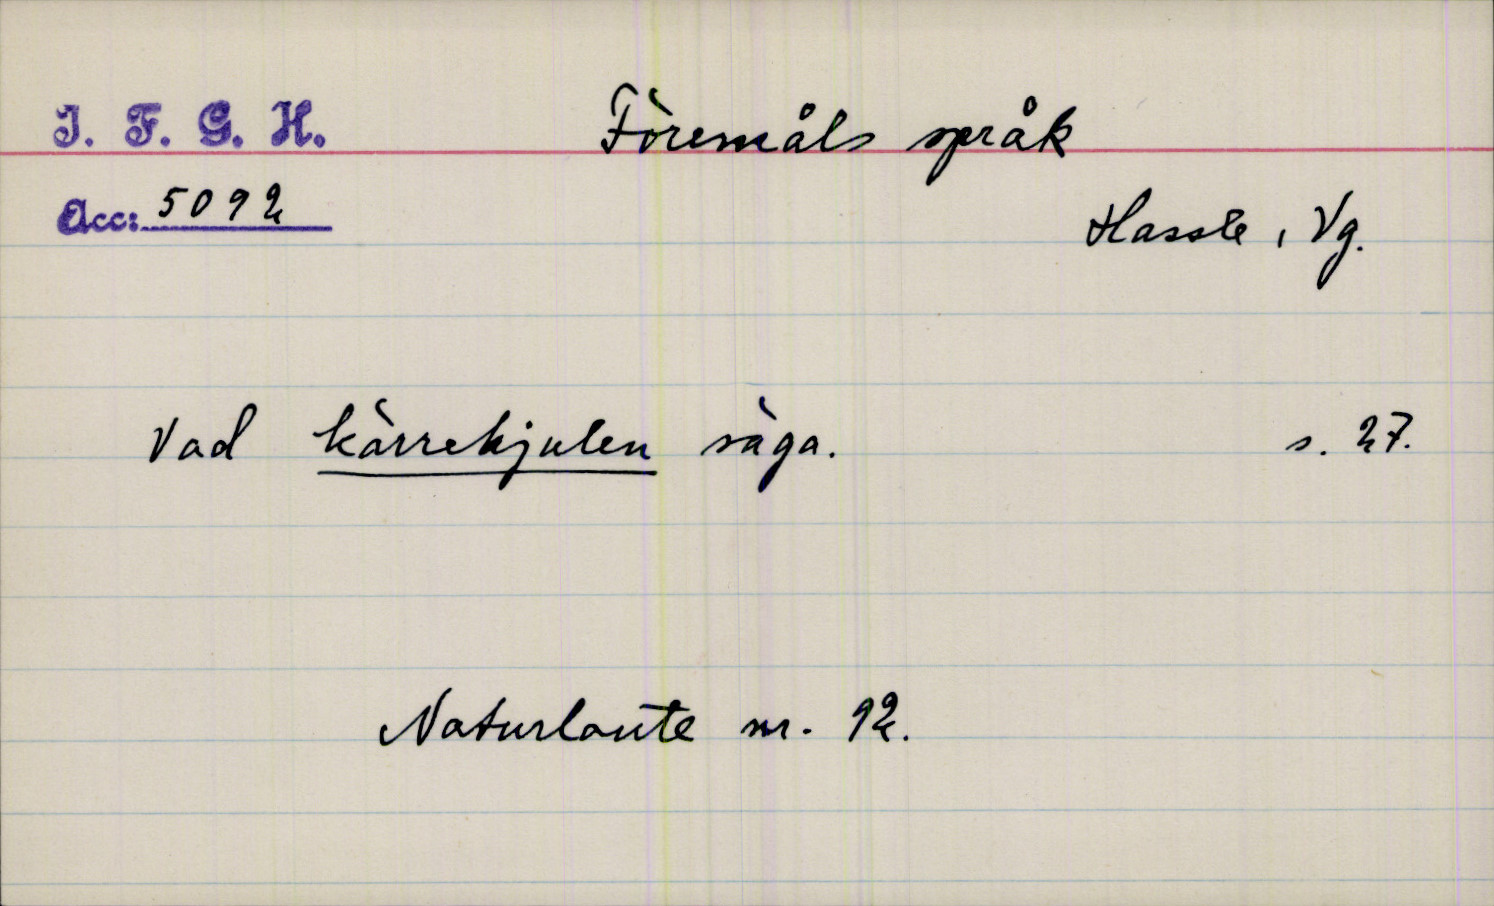 I. F. G. H.
Föremåls språk
Acc: 5092
Hassle, Vg.
Vad kärrehjulen säga. s. 27.
Naturlaute nr. 92.